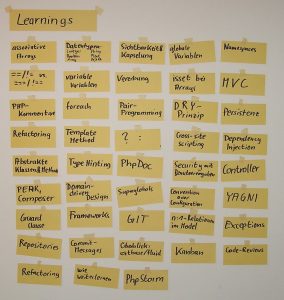 Learnings
assoziative Arrays
Datentypen
Sichtbarkeit & Kapselung
globale Variablen
Namespaces
===/!= vs. ==/!=
variable Variablen
Vererbung
isset bei Arrays
MVC
PHP-Kommentare
foreach
Pair-Programming
DRY-Prinzip
Persistenz
Refactoring
Template Method
? :
Cross-site scripting
Dependency Injection
Abstrakte Klassen & Methoden
Type Hinting
PhpDoc
Security mit Benutzereingaben
Controller
PEAR, Composer
Domain-driven Design
Superglobals
Convention over Configuration
YAGNI
Guard Clause
Frameworks
GIT
n:n-Relationen im Model
Exceptions
Repositories
Commit-Messages
Kanban
Code-Reviews
Refactoring
wie weiterlernen
PhpStorm